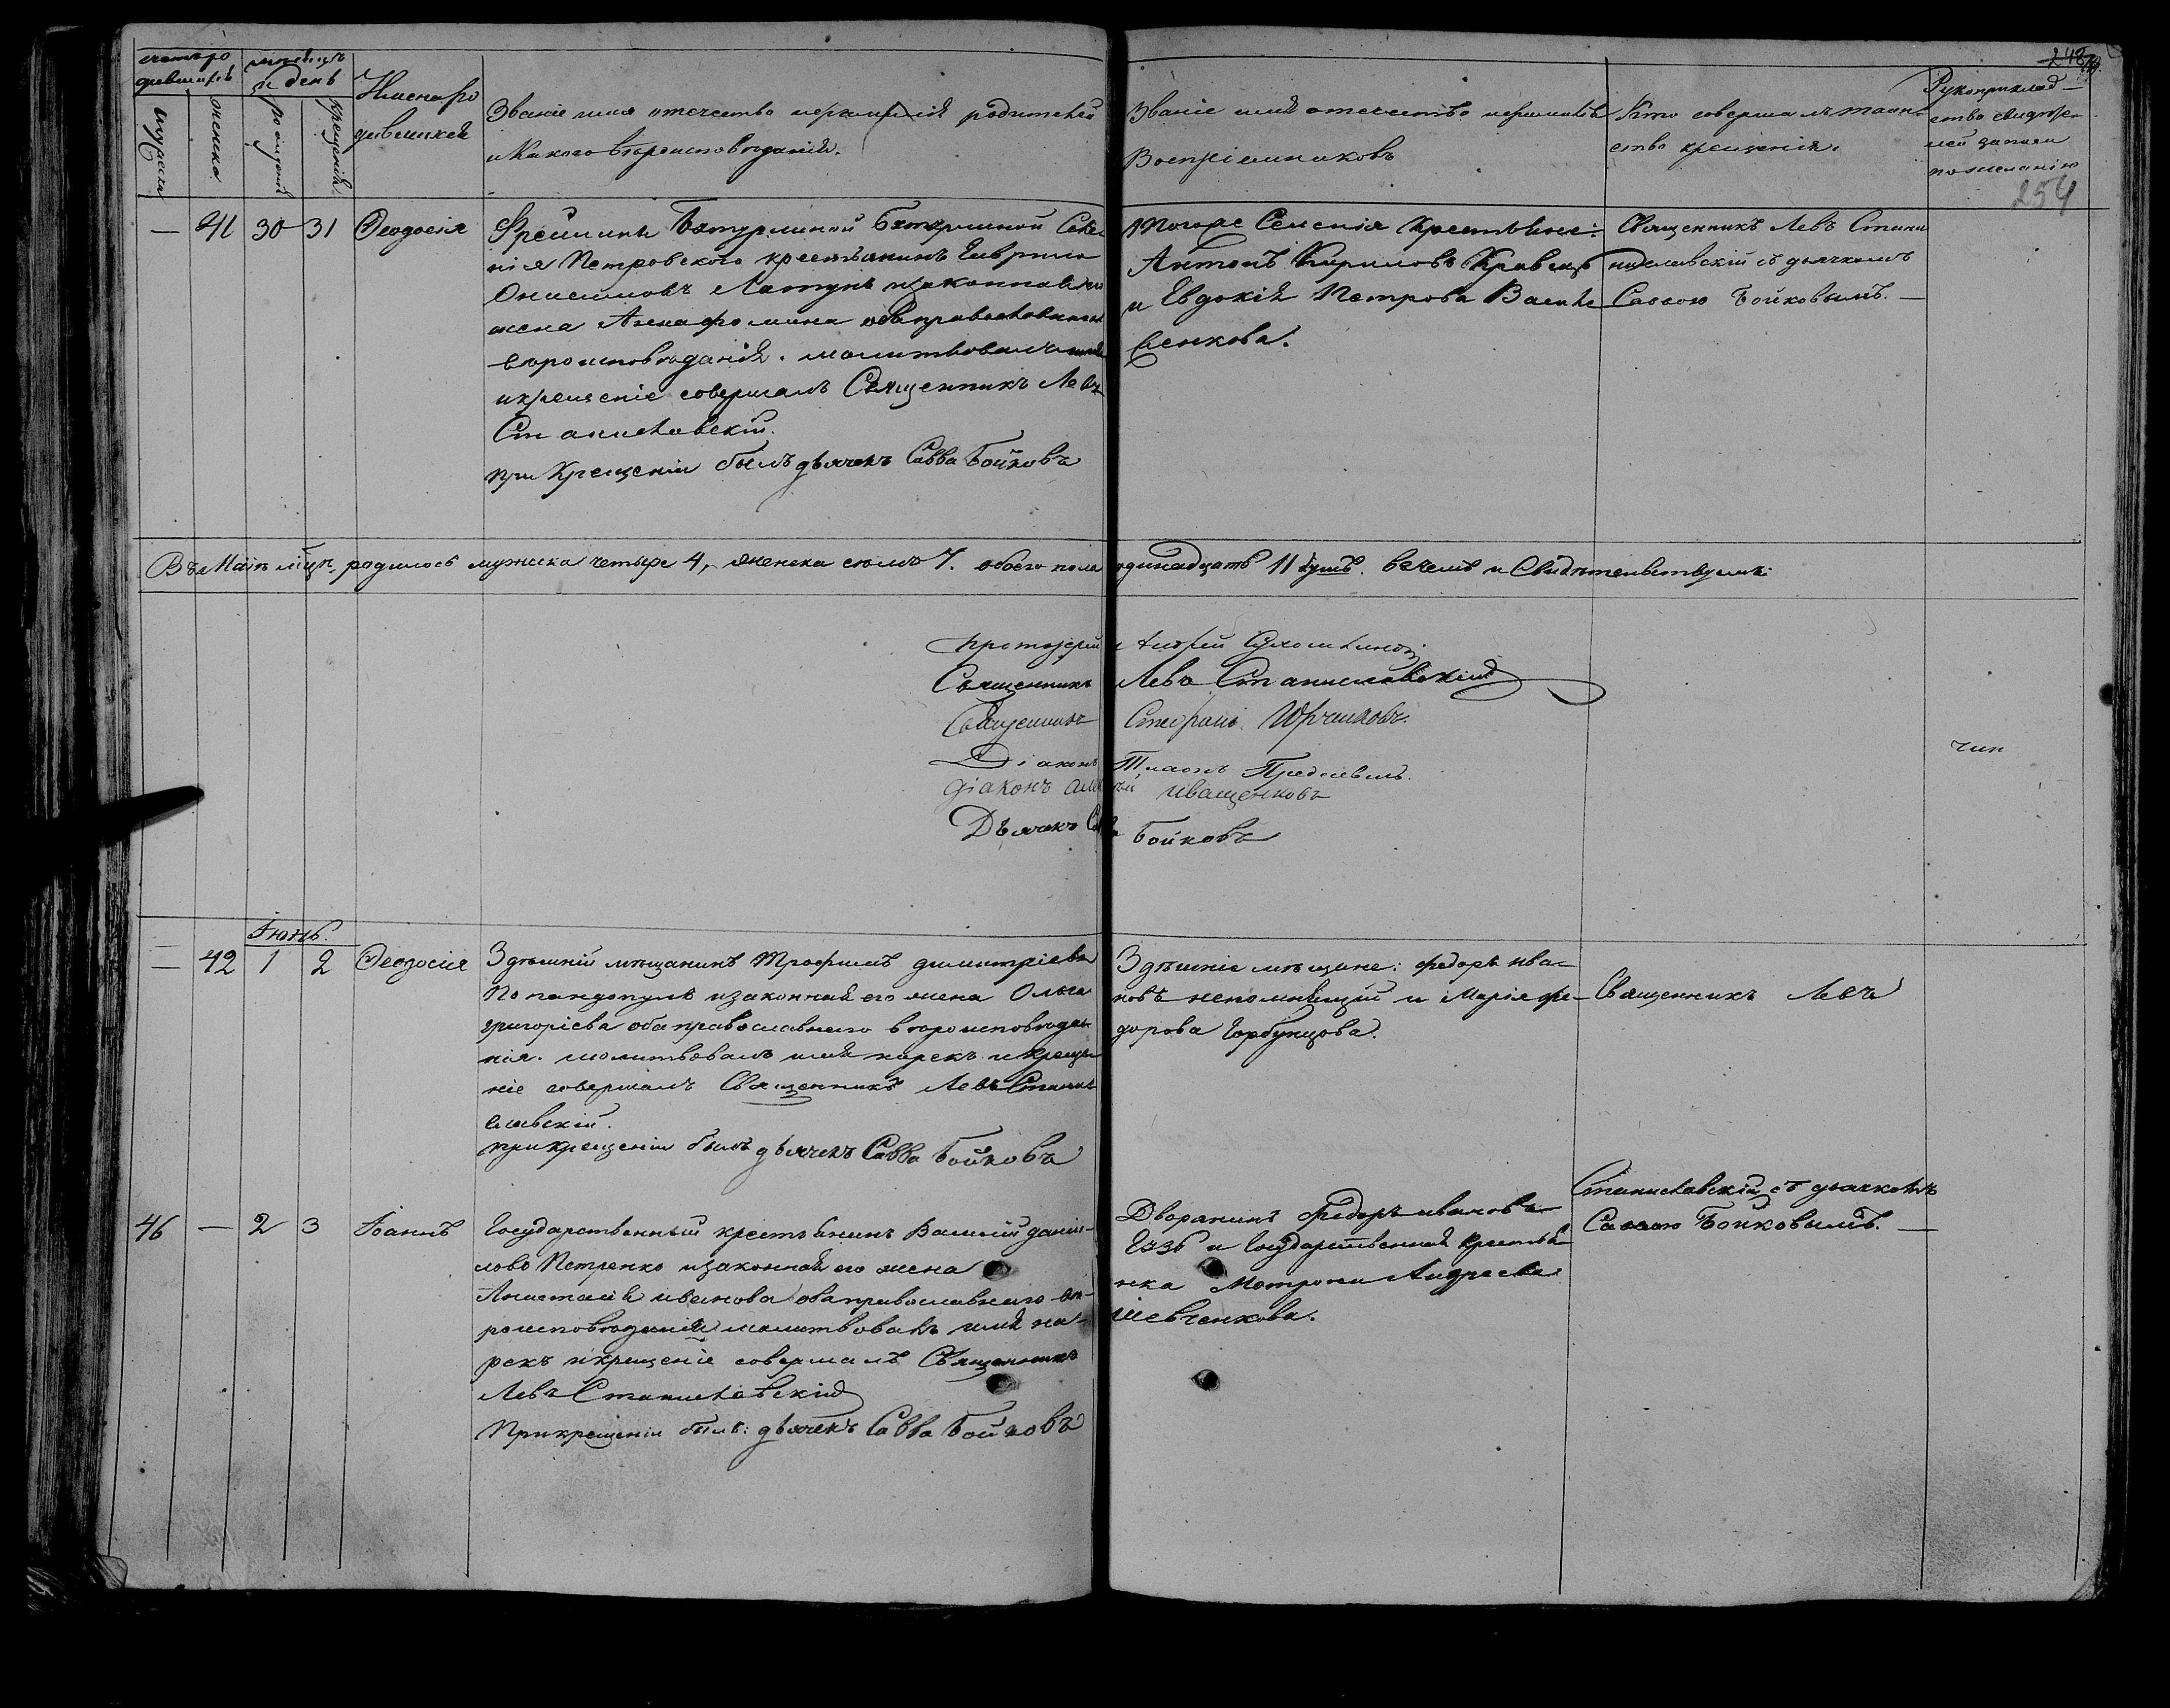 счетъ ро
дившихъ
мѣсяцъ
и день
мужеска
женска
рожденія
крещенія
Имена ро
дившихся
Званіе имя отечество и фамилія родителей
и Какого вѣроисповѣданія.
Званіе имя отечество и фамилія
Воспріемниковъ
Кто совершалъ таин-
ство крещенія.
Рукоприклад-
ство свидѣте-
лей записи
по желанію
248
254
— 41 30 31 Ѳеодосія
Батуриной Екатериной Селе-
нія Петровского крестьянинъ Гаврило
Онисимовъ Латунъ и законная его
жена Анна Фомина оба православнаго
вѣроисповѣданія. молитвовалъ имя
и крещеніе совершалъ Священникъ Левъ
Станиславскій.
при Крещеніи былъ дьячекъ Савва Бойковъ
Тогоже Селенія Крестьяне:
Антонъ Кириловъ Кравецъ
и Евдокія Петрова Василь
сенкова.
Священникъ Левъ Стани
славскій съ дьячкомъ
Саввою Бойковымъ. —
Въ Маіѣ мѣцѣ, родилось мужска четыре 4, женска семь 7. обоего пола одинадцать 11 душъ. въ чемъ и Свидѣтельствуемъ:
Протоіерей Андрей
Священникъ Левъ Станиславскій
Священникъ Стефанъ Юрченковъ.
Діаконъ
діаконъ Иващенковъ
Дьячекъ Савва Бойковъ
чип
Іюнь.
— 42 1 2 Ѳеодосія
Здѣшній мѣщанинъ Трофимъ Димитріевъ
Попандопуло и законная его жена Ольга
григоріева оба православнаго вѣроисповѣда-
нія. молитвовалъ имя нарекъ и креще
ніе совершалъ Священникъ Левъ Стани
славскій.
при крещеніи былъ дьячекъ Савва Бойковъ
Здѣшніе мѣщане: Федоръ Ива-
новъ непомнящій и Марія Фе-
дорова Горбунцова.
Священникъ Левъ
Станиславскій съ дьячкомъ
Саввою Бойковымъ. —
46 — 2 3 Іоаннъ
Государственный крестьянинъ Василій Дани-
ловъ Петренко и законная его жена
Анастасія Иванова оба православнаго вѣ-
роисповѣданія молитвовалъ имя на-
рекъ и крещеніе совершалъ Священникъ
Левъ Станиславскій
При крещеніи былъ: дьячекъ Савва Бойковъ
Дворянинъ Федоръ Ивановъ
и Государственная крестья-
нка Матрона Андреева
Шевченкова.